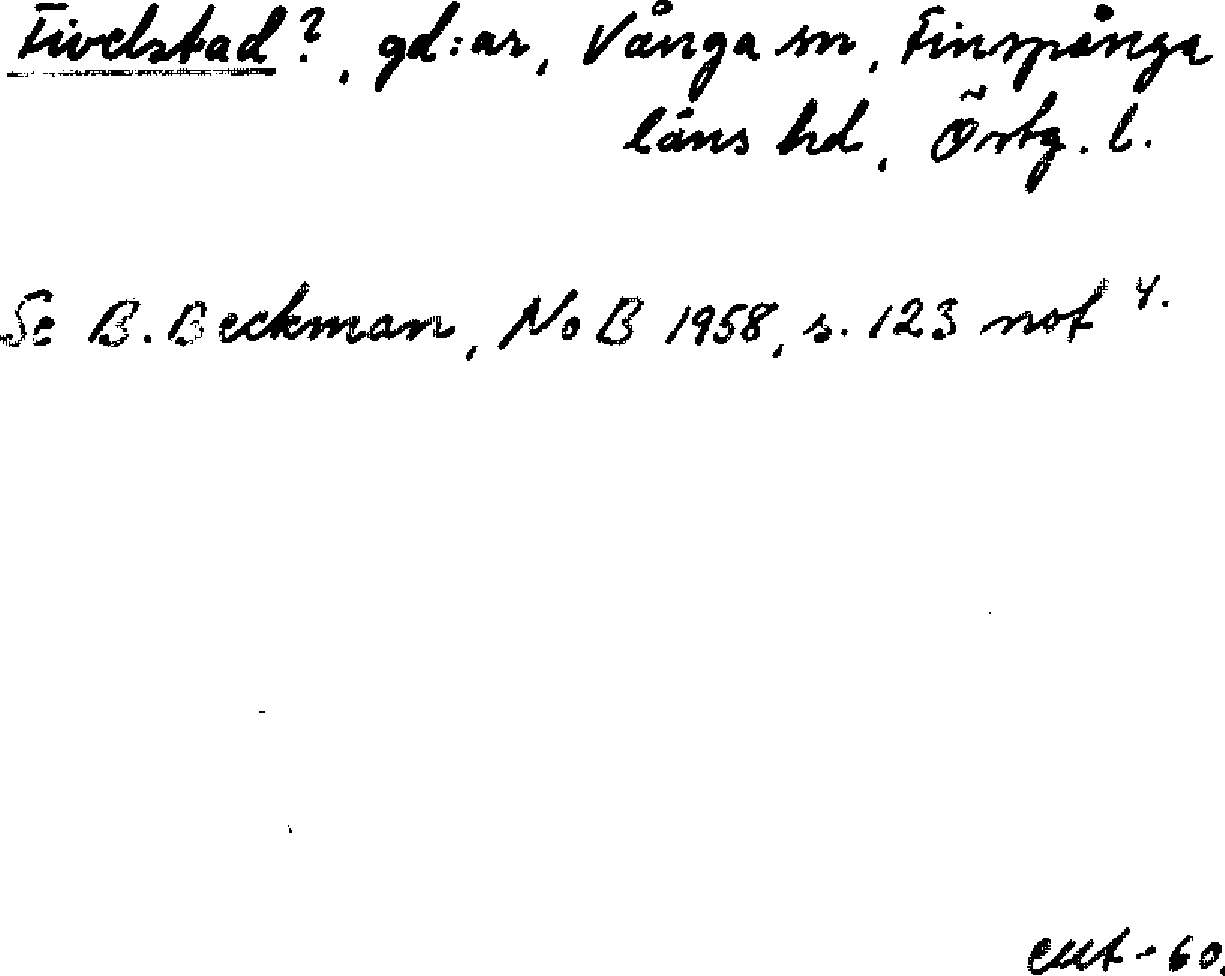 Fivelstad?, gd:ar, Vånga sn, Finspånga
läns hd, Östg. l.
Se B. Beckman, NoB 1958, s. 123 not 4.
-60.